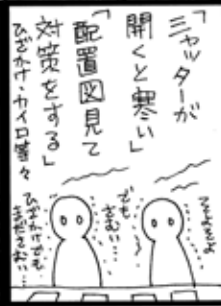 「シャッターが
開くと寒い」
「配置図見て
対策をする」
ひざかけ・カイロ等々
そよそよ
でも
さむい…
ひざかけでも
まださむい…